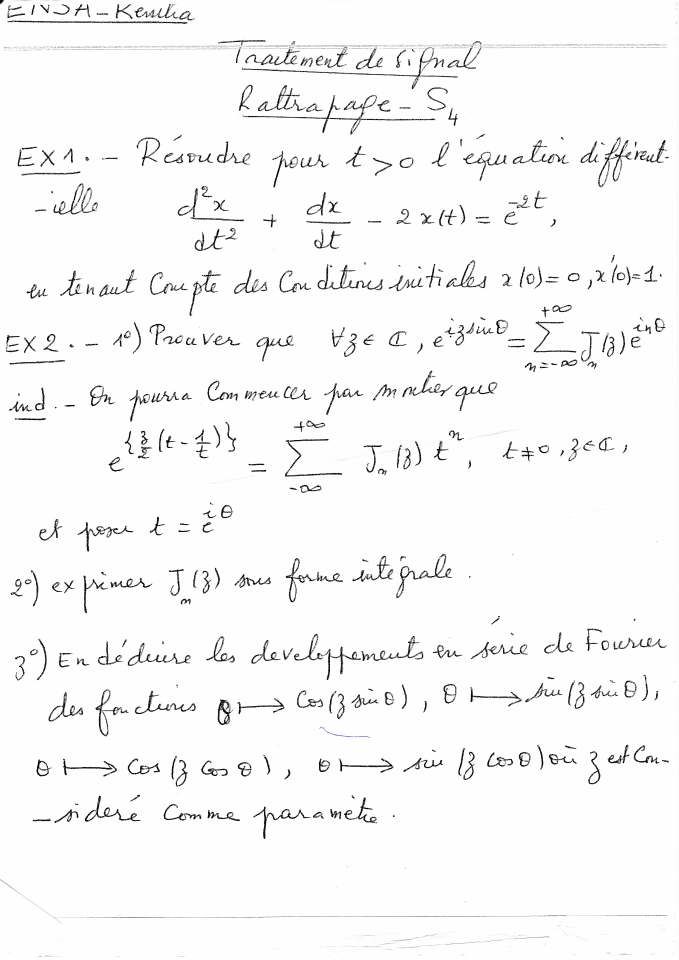 ENSA - Kenitra
Traitement de signal
Rattrapage - S₄
EX1. - Résoudre pour t > 0 l'équation différent-
-ielle d²x/dt² + dx/dt - 2x(t) = e^{-2t},
en tenant Compte des Conditions initiales x(0)=0, x'(0)=1.
EX2. - 1°) Prouver que ∀z ∈ ℂ, e^{iz sinθ} = ∑_{n=-∞}^{+∞} J_n(z) e^{inθ}
ind. - On pourra Commencer par montrer que
e^{{z/2 (t - 1/t)}} = ∑_{-∞}^{+∞} J_n(z) t^n, t≠0, z∈ℂ,
et poser t = e^{iθ}
2°) exprimer J_n(z) sous forme intégrale.
3°) En déduire les developpements en série de Fourier
des fonctions θ ⟼ Cos(z sinθ), θ ⟼ sin(z sinθ),
θ ⟼ Cos(z Cosθ), θ ⟼ sin(z Cosθ) où z est Con-
-sideré Comme paramètre.